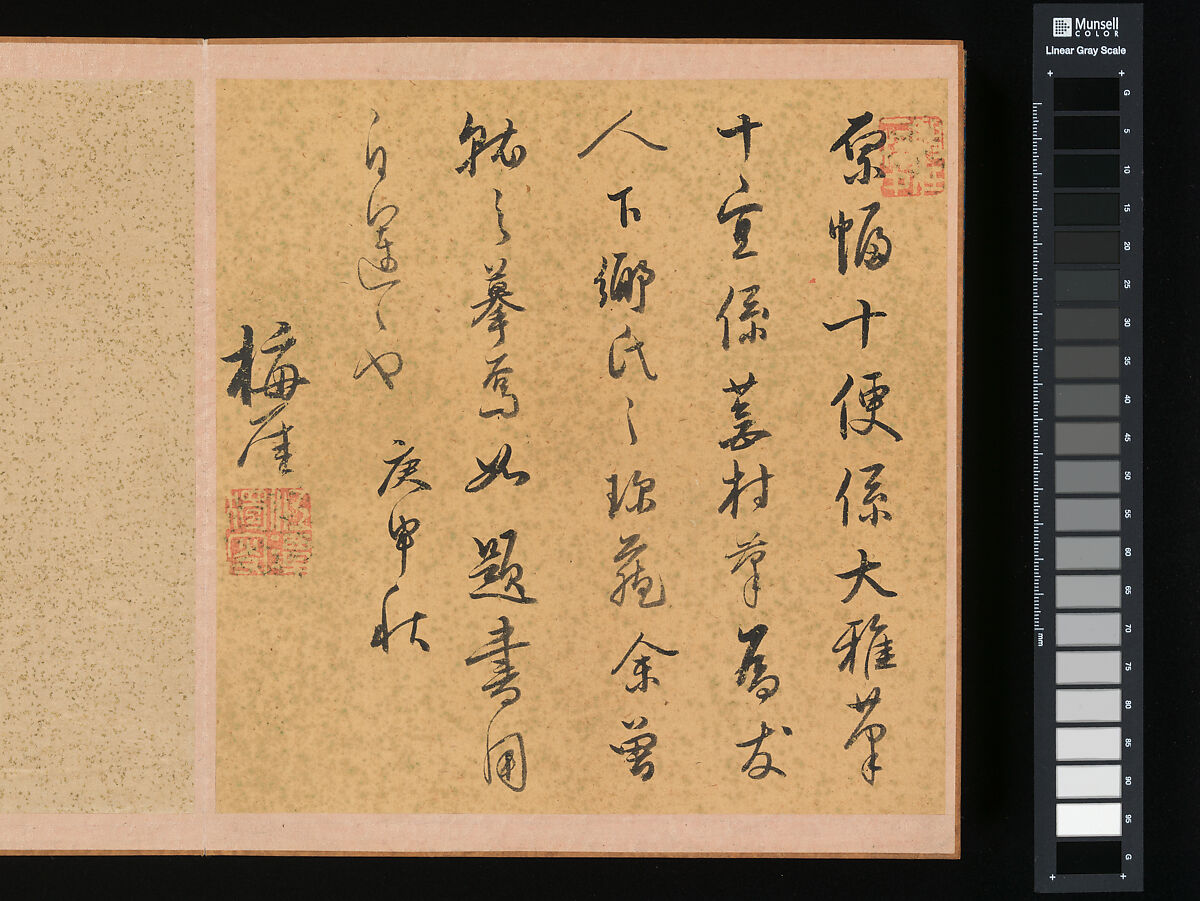 原幅十便係大雅筆
十宜係蕪村筆爲友
人下郷氏之珍蔵余曽
就之摹焉如題書用
自運之也 庚申秋
梅厓
Munsell
COLOR
Linear Gray Scale
G
5
10
15
20
25
30
35
40
45
50
55
60
65
70
75
80
85
90
95
G
mm